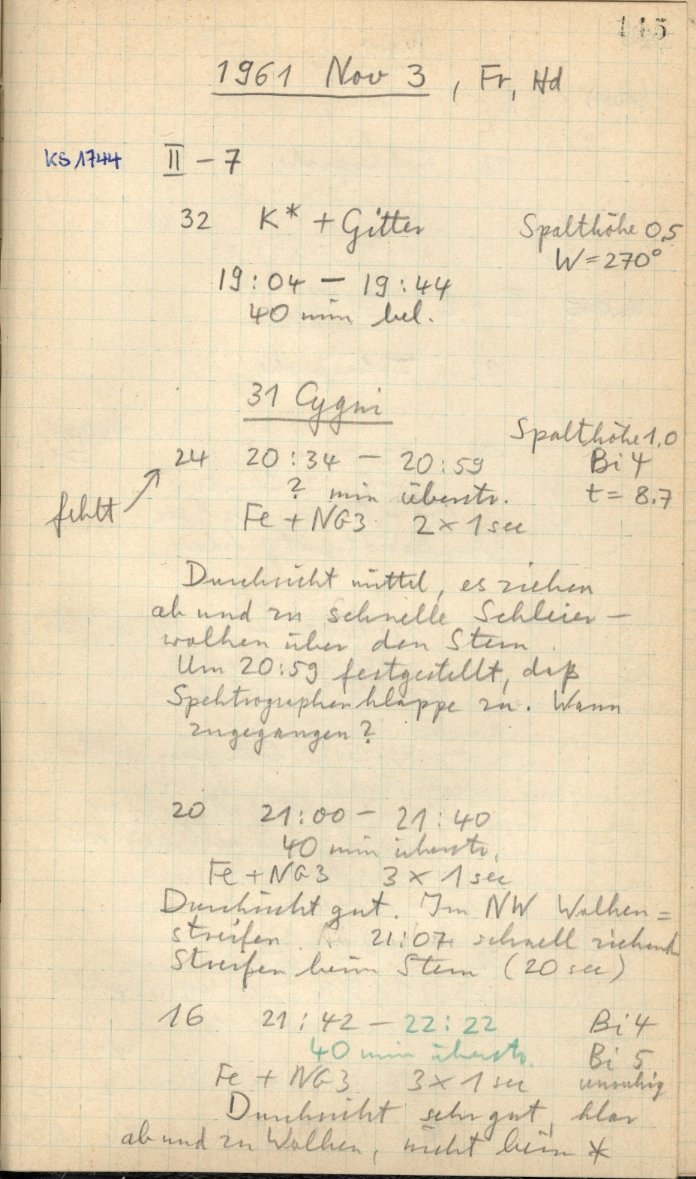 145
1961 Nov 3, Fr, Hd
KS 1744 II - 7
32 K* + Gitter Spalthöhe 0,5
W = 270°
19:04 - 19:44
40 min bel.
31 Cygni
Spalthöhe 1,0
24 20:34 - 20:59 Bi 4
? min überstr. t = 8.7
fehlt
Fe + NG3 2 x 1 sec
Durchsicht mittel, es ziehen
ab und zu schnelle Schleier-
wolken über den Stern.
Um 20:59 festgestellt, daß
Spektrographenklappe zu. Wann
zugegangen?
20 21:00 - 21:40
40 min überstr.
Fe + NG3 3 x 1 sec
Durchsicht gut. Im NW Wolken=
streifen 21:07 schnell ziehende
Streifen beim Stern (20 sec)
16 21:42 - 22:22 Bi 4
40 min überstr. Bi 5
Fe + NG3 3 x 1 sec unruhig
Durchsicht sehr gut, klar
ab und zu Wolken, nicht beim *